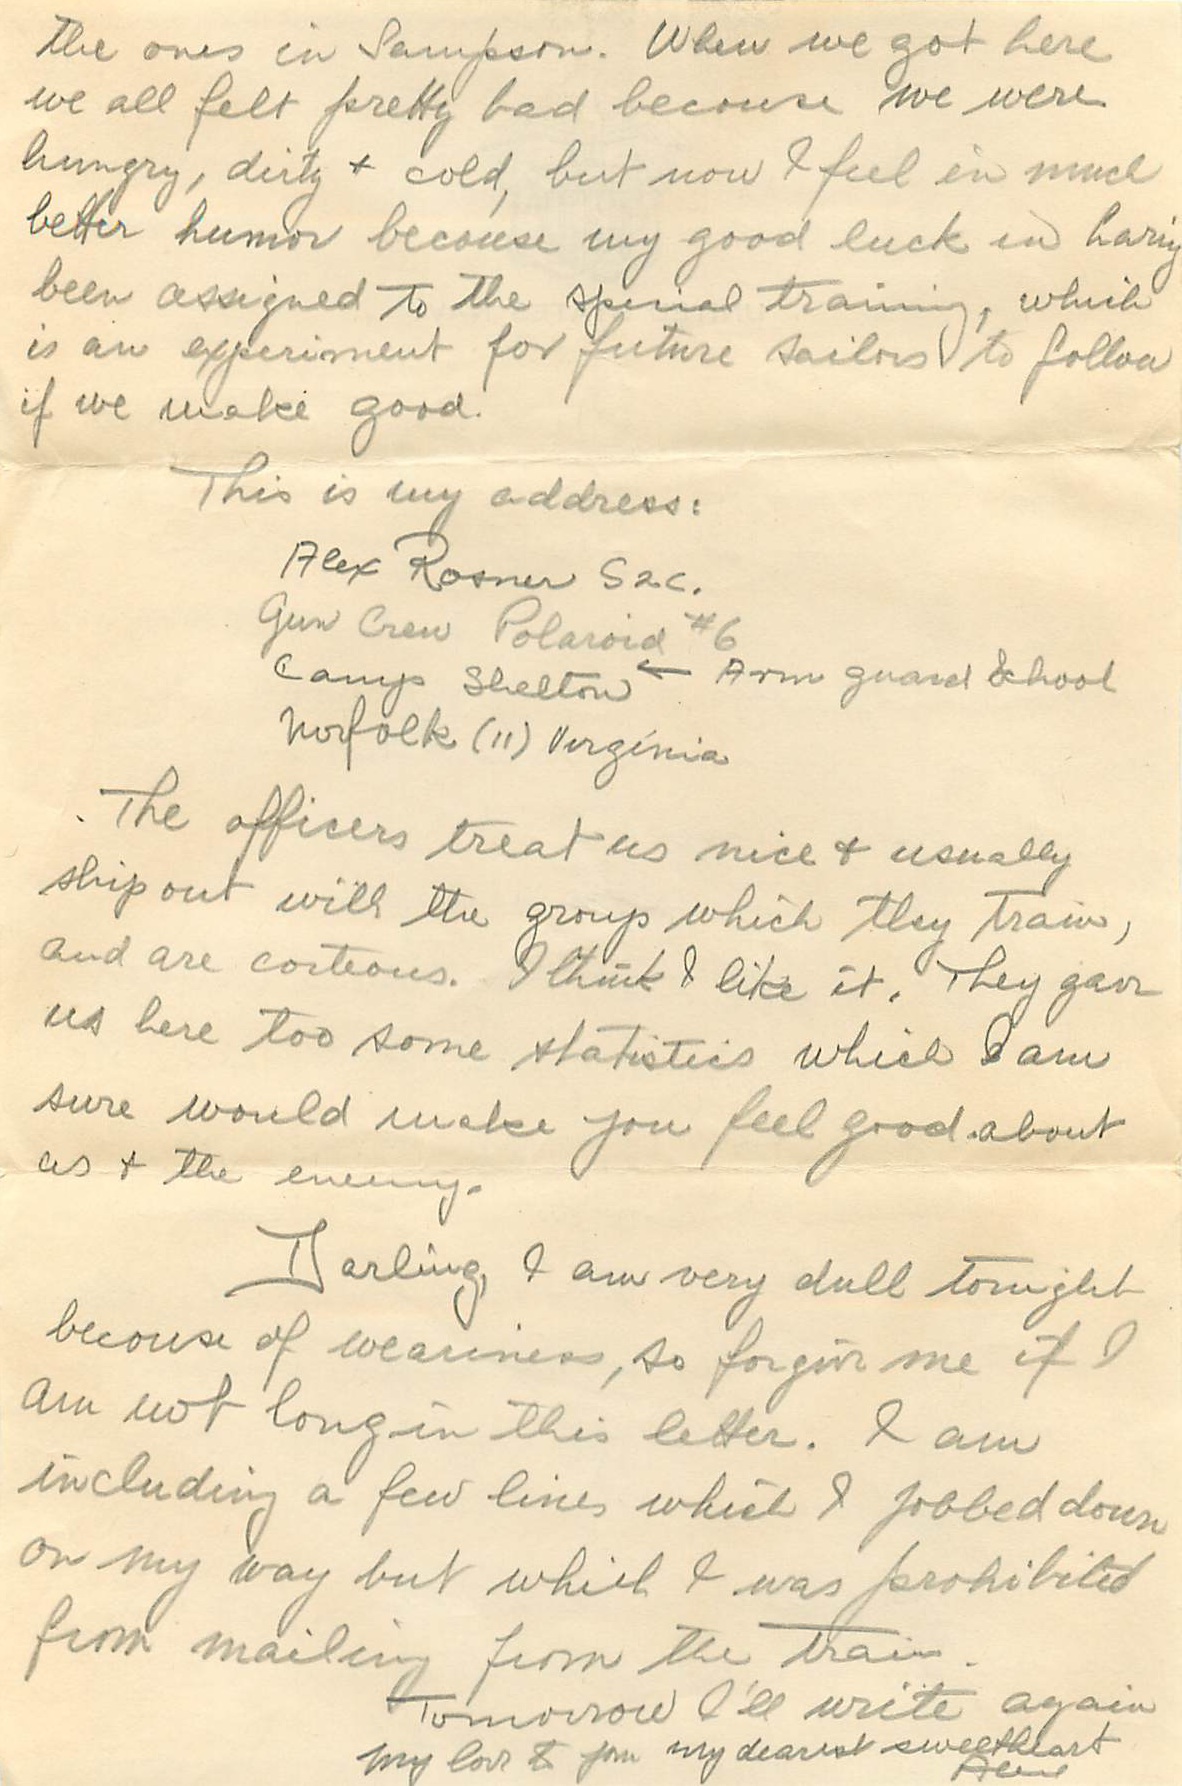 the ones in Sampson. When we got here
we all felt pretty bad becouse we were
hungry, dirty + cold, but now I feel in much
better humor becouse my good luck in having
been assigned to the special training, which
is an experiment for future sailors to follow
if we make good.
This is my address:
Alex Rosner S2c.
Gun Crew Polaroid #6
Camp Shelton ← Arm guard School
Norfolk (11) Virginia
The officers treat us nice + usually
ship out with the group which they train,
and are corteous. I think I like it. They gave
us here too some statistics which I am
sure would make you feel good about
us + the enemy.
Darling, I am very dull tonight
becouse of weariness, so forgive me if I
am not long in this letter. I am
including a few lines which I jobbed down
on my way but which I was prohibited
from mailing from the train.
Tomorrow I'll write again
My love to you my dearest sweetheart
Alex